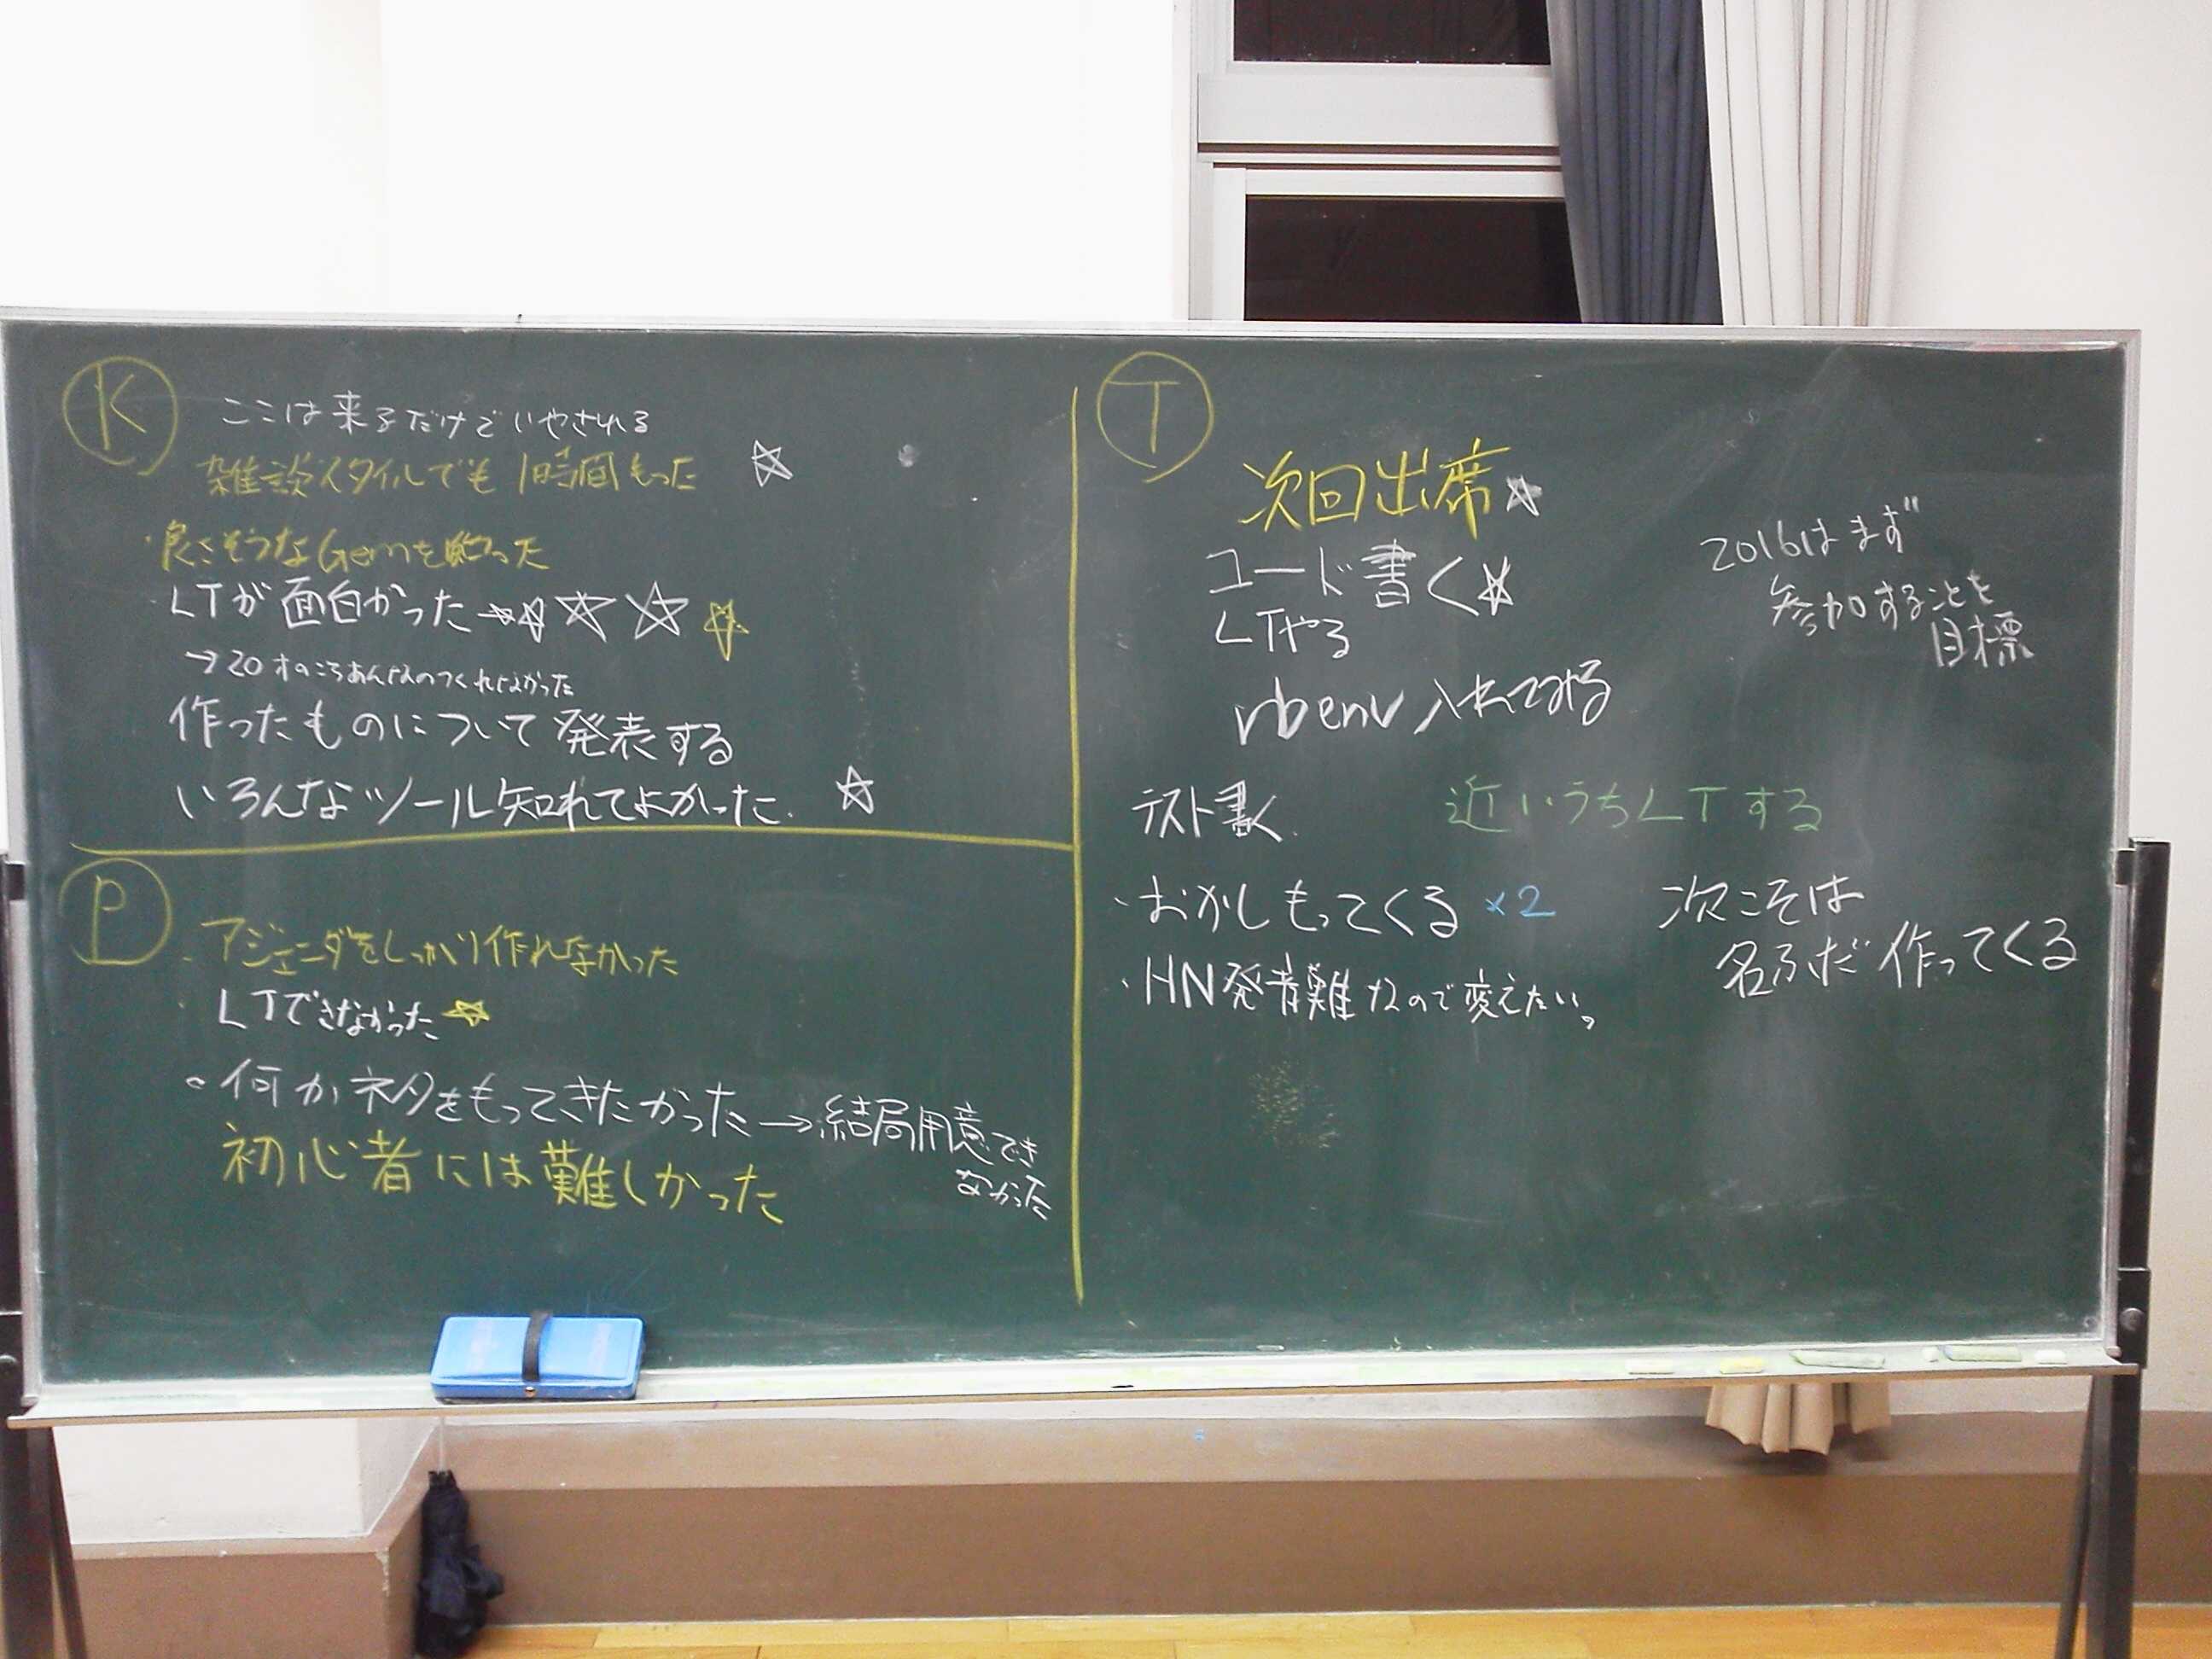 K
ここは来るだけでいやされる
雑談スタイルでも1時間もった ☆
・良さそうなGemを知った
・LTが面白かった ☆☆☆☆☆
→20才のころあんなのつくれなかった
作ったものについて発表する
いろんなツール知れてよかった. ☆
P
・アジェンダをしっかり作れなかった
・LTできなかった☆
。何かネタをもってきたかった→結局用意でき
なかった
初心者には難しかった
T
次回出席☆
コード書く☆
LTやる
rbenv入れてみる
2016はまず
参加することを
目標
テスト書く
近いうちLTする
・おかしもってくる ×2
・HN発音難なので変えたい。
次こそは
名ふだ作ってくる